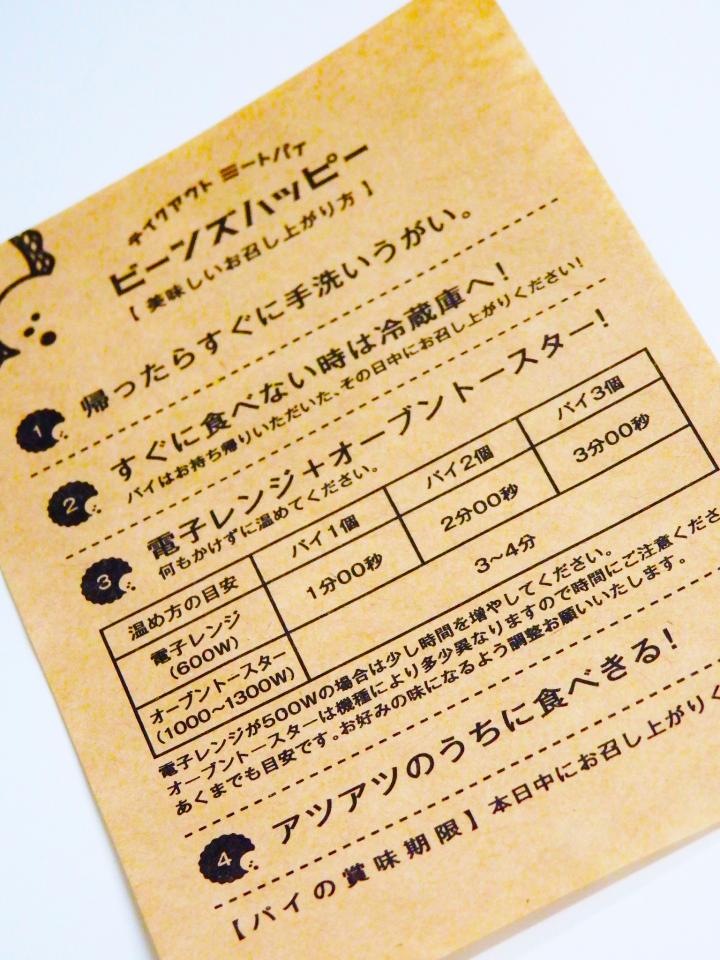 テイクアウト ミートパイ
ビーンズハッピー
[ 美味しいお召し上がり方 ]
1 帰ったらすぐに手洗いうがい。
2 すぐに食べない時は冷蔵庫へ!
パイはお持ち帰りいただいた、その日中にお召し上がりください!
3 電子レンジ+オーブントースター!
何もかけずに温めてください。
温め方の目安 パイ1個 パイ2個 パイ3個
電子レンジ (600W) 1分00秒 2分00秒 3分00秒
オーブントースター (1000〜1300W) 3〜4分
電子レンジが500Wの場合は少し時間を増やしてください。
オーブントースターは機種により多少異なりますので時間にご注意くださ
あくまでも目安です。お好みの味になるよう調整お願いいたします。
4 アツアツのうちに食べきる!
【パイの賞味期限】本日中にお召し上がりく